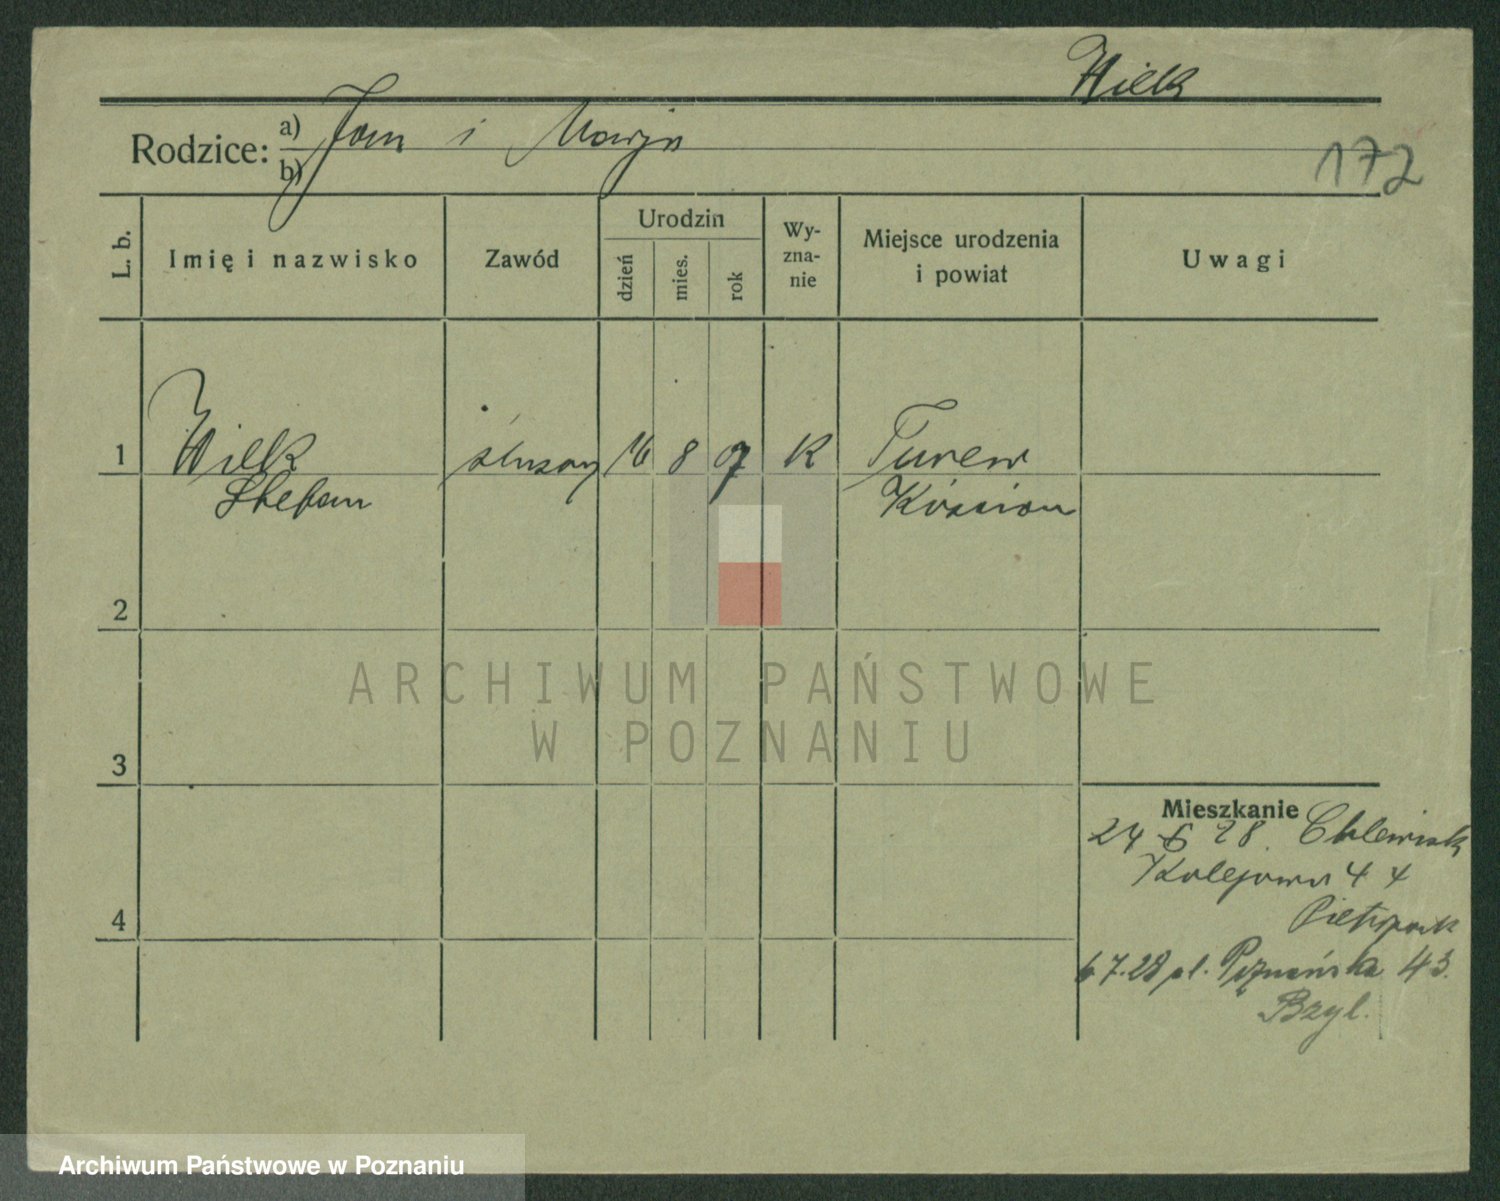 Wilk
Rodzice: a) Jan i Marja
b)
172
L. b.
Imię i nazwisko
Zawód
Urodzin
dzień
mies.
rok
Wy-
zna-
nie
Miejsce urodzenia
i powiat
Uwagi
1 Wilk ślusarz 16 8 07 K Turew
Stefan Kościan
2
3
4
Mieszkanie
24 6 28.
Kolejowa 44
Pietrzak
6 7. 28 pl. Poznańska 43.
Bzyl.
ARCHIWUM PAŃSTWOWE
W POZNANIU
Archiwum Państwowe w Poznaniu